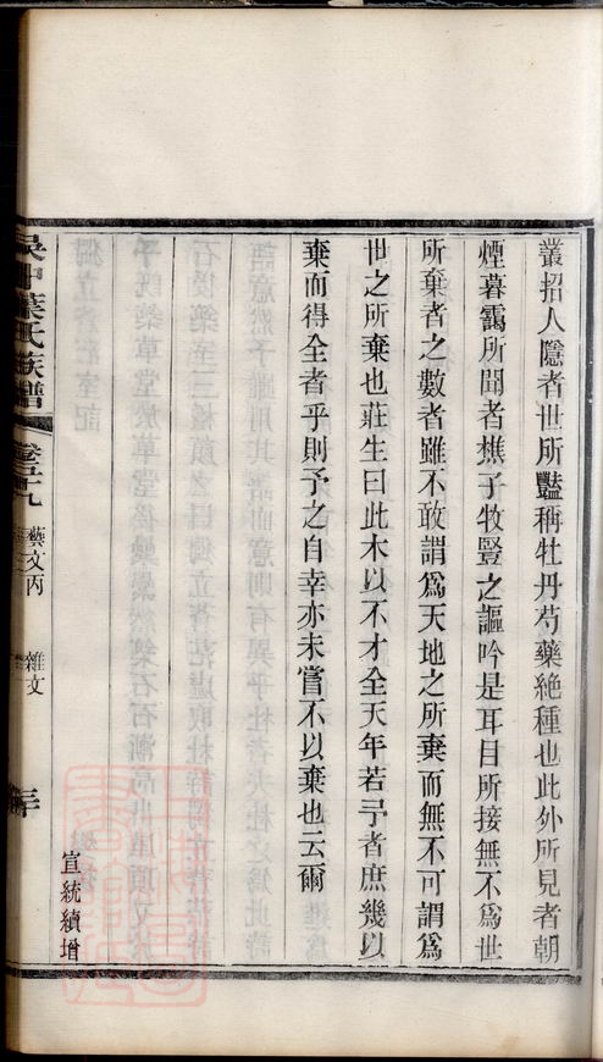 叢招人隱者世所豔稱牡丹芍藥絶種也此外所見者朝
煙暮靄所聞者樵子牧豎之謳吟是耳目所接無不爲世
所棄者之數者雖不敢謂爲天地之所棄而無不可謂爲
世之所棄也莊生曰此木以不才全天年若予者庶幾以
棄而得全者乎則予之自幸亦未嘗不以棄也云爾
宣統續增
吳中葉氏族譜
藝文丙 雜文